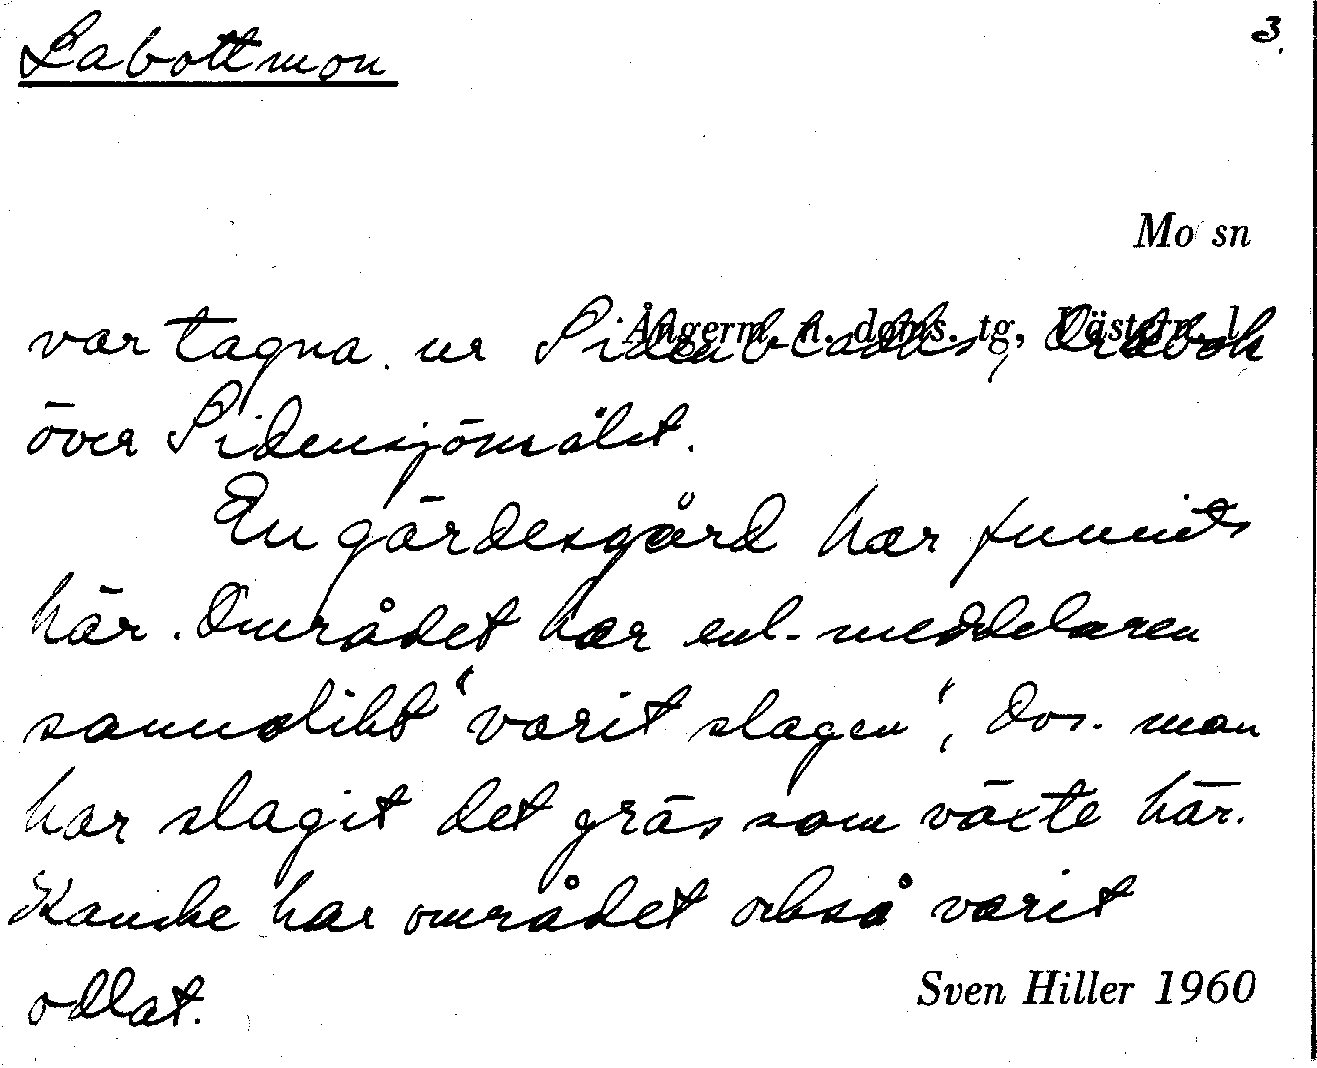 Labottmon
3.
Mo sn
Ångerm. n. doms. tg, Västern. l.
var tagna ur Sidenbladhs, Ordbok
över Sidensjömålet.
En gärdesgård har funnits
här. Området har enl. meddelaren
sannolikt "varit slagen", dvs. man
har slagit det gräs som växte här.
Kanske har området också varit
odlat.
Sven Hiller 1960